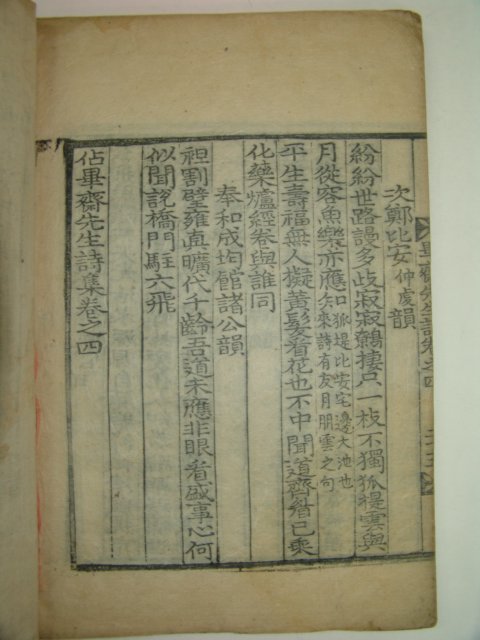 次鄭比安仲虔韻
紛紛世路謾多歧寂寂鷦棲只一枝不獨狐堤雲與
月從容魚樂亦應知狐堤比安宅邊大池也來詩有友月朋雲之句
平生壽福無人擬黃髮看花也不中聞道齊諧已乘
化藥爐經卷與誰同
奉和成均館諸公韻
袒割璧雍眞曠代千齡吾道未應非眼看盛事心何
似聞說橋門駐六飛
佔畢齋先生詩集卷之四